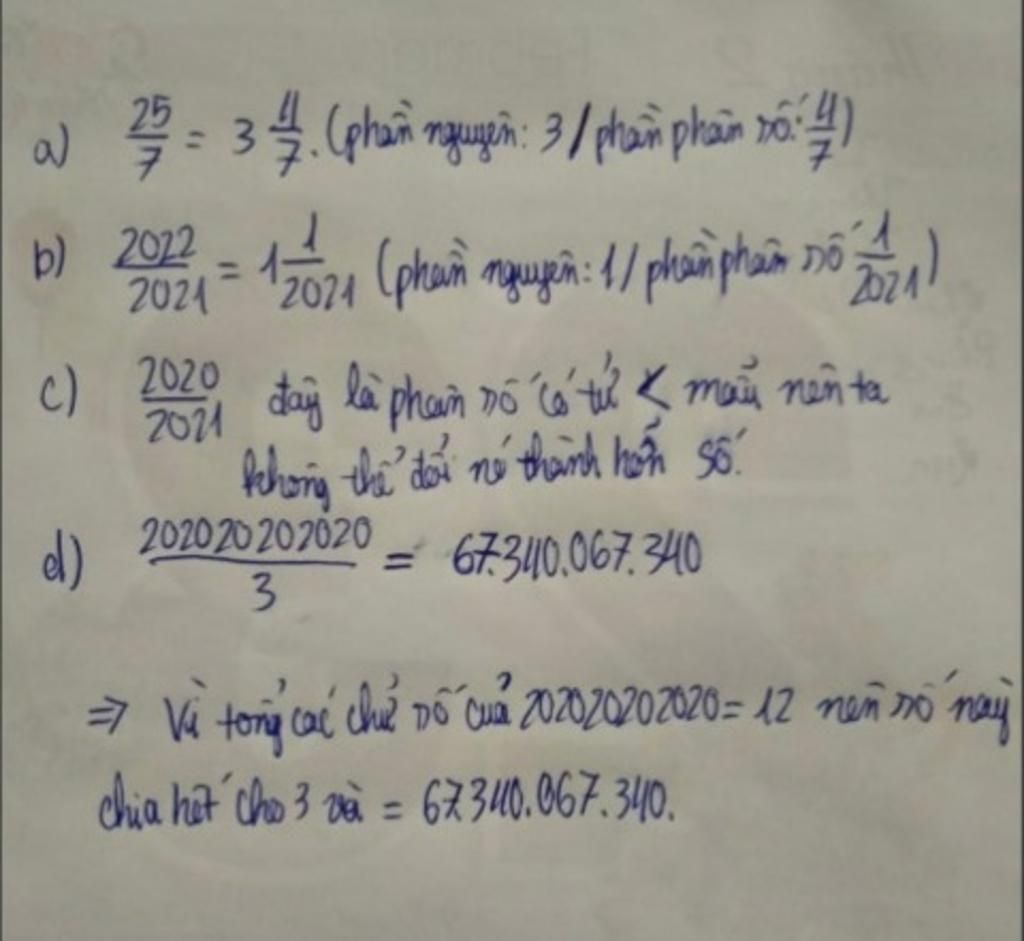 a) 25/7 = 3 4/7. (phần nguyên: 3 / phần phân số: 4/7)
b) 2022/2021 = 1 1/2021 (phần nguyên: 1 / phần phân số 1/2021)
c) 2020/2021 đây là phân số có tử < mẫu nên ta
không thể đổi nó thành hỗn số.
d) 202020202020/3 = 67.340.067.340
⇒ Vì tổng các chữ số của 202020202020 = 12 nên số này
chia hết cho 3 và = 67.340.067.340.